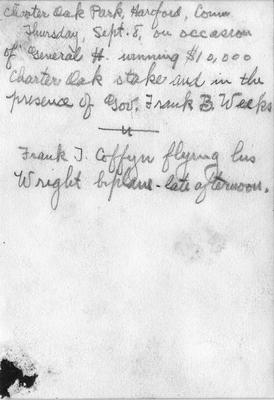 Charter Oak Park, Hartford, Conn
Thursday, Sept. 8, on occasion
of General H. winning $10,000
Charter Oak stake and in the
presence of Gov. Frank B. Weeks
"
Frank T. Coffyn flying his
Wright biplane - late afternoon.